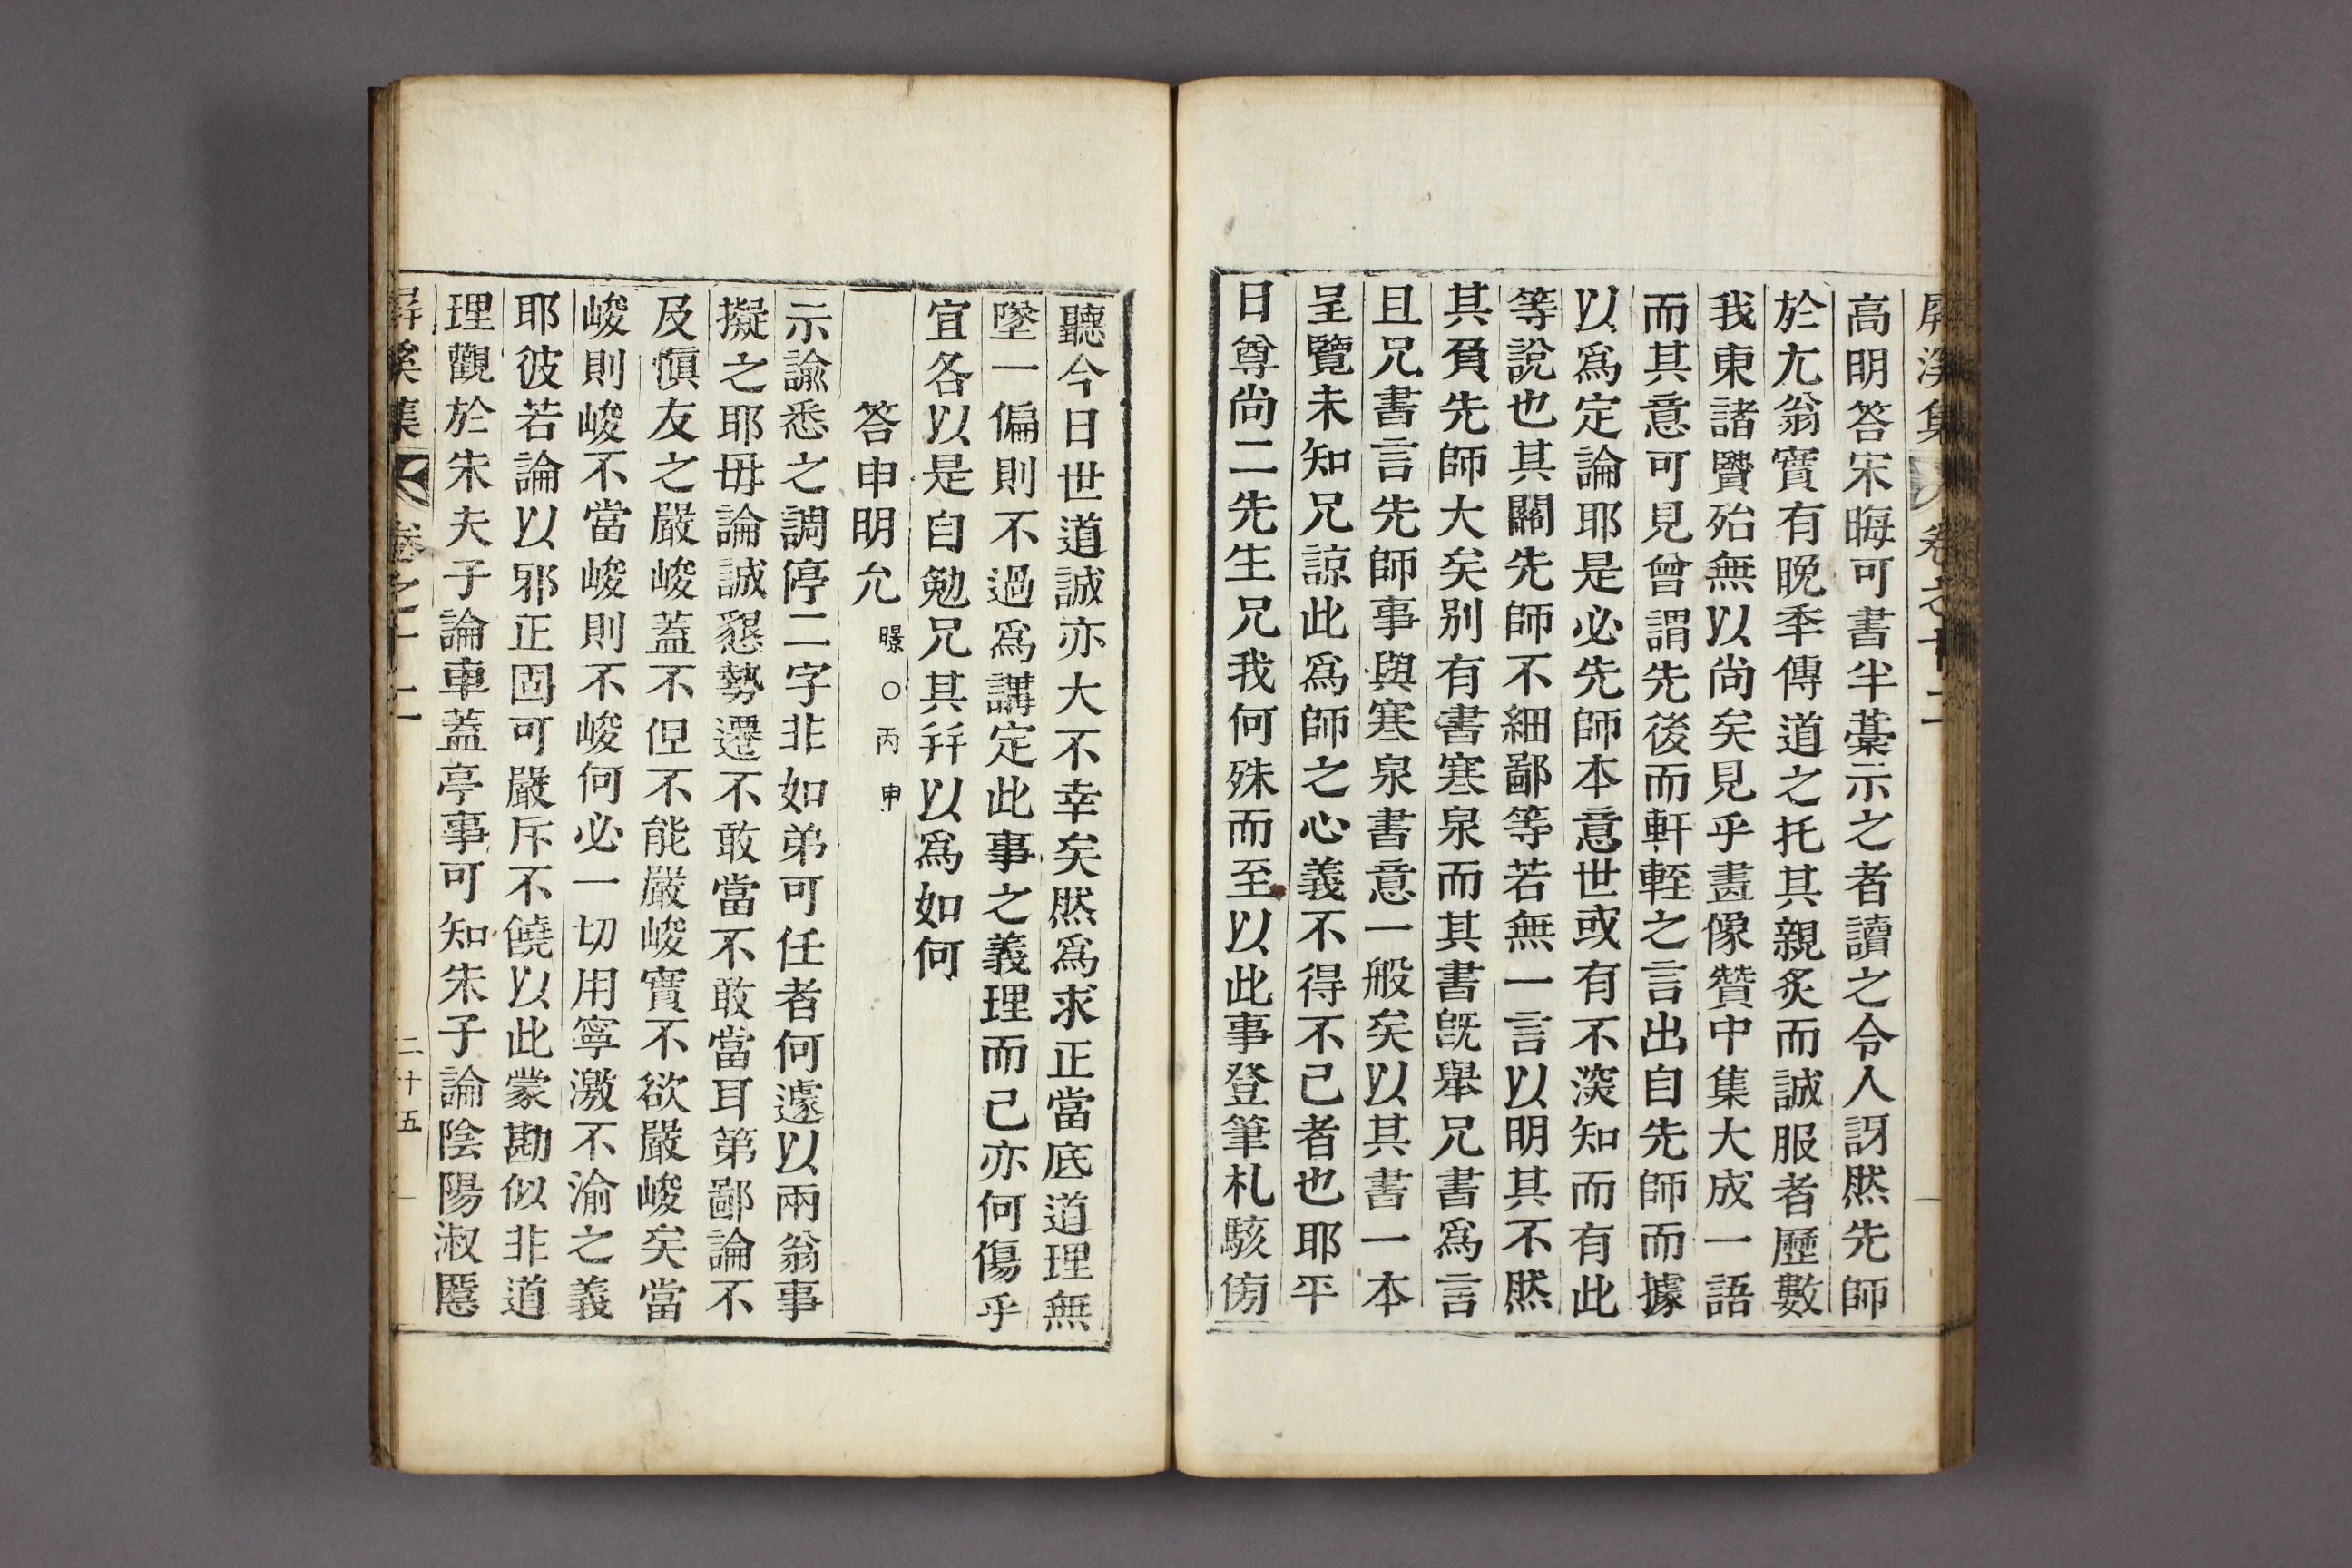 屏溪集 卷之十二
高明答宋晦可書半藁示之者讀之令人訝然先師
於尤翁實有晩年傳道之托其親炙而誠服者歷數
我東諸賢殆無以尚矣見乎畫像贊中集大成一語
而其意可見曾謂先後而軒輊之言出自先師而據
以爲定論耶是必先師本意世或有不深知而有此
等說也其關先師不細鄙等若無一言以明其不然
其負先師大矣別有書寒泉而其書旣舉兄書爲言
且兄書言先師事與寒泉書意一般矣以其書一本
呈覽未知兄諒此爲師之心義不得不已者也耶平
日尊尚二先生兄我何殊而至以此事登筆札駭傍
聽今日世道誠亦大不幸矣然爲求正當底道理無
墜一偏則不過爲講定此事之義理而已亦何傷乎
宜各以是自勉兄其幷以爲如何
答申明允 暻○丙申
示諭悉之調停二字非如弟可任者何遽以兩翁事
擬之耶毋論誠懇勢遷不敢當不敢當耳第鄙論不
及愼友之嚴峻蓋不但不能嚴峻實不欲嚴峻矣當
峻則峻不當峻則不峻何必一切用寧激不渝之義
耶彼若論以邪正固可嚴斥不饒以此蒙勘似非道
理觀於朱夫子論車蓋亭事可知朱子論陰陽淑慝
屏溪集 卷之十二 二十五